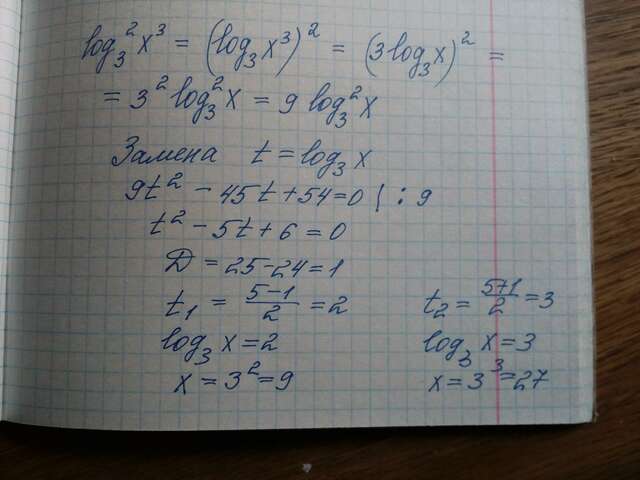 log₃²x³ = (log₃x³)² = (3log₃x)² =
= 3²log₃²x = 9log₃²x
Замена t = log₃x
9t² - 45t + 54 = 0 | : 9
t² - 5t + 6 = 0
D = 25 - 24 = 1
t₁ = (5-1)/2 = 2 t₂ = (5+1)/2 = 3
log₃ x = 2 log₃ x = 3
x = 3² = 9 x = 3³ = 27